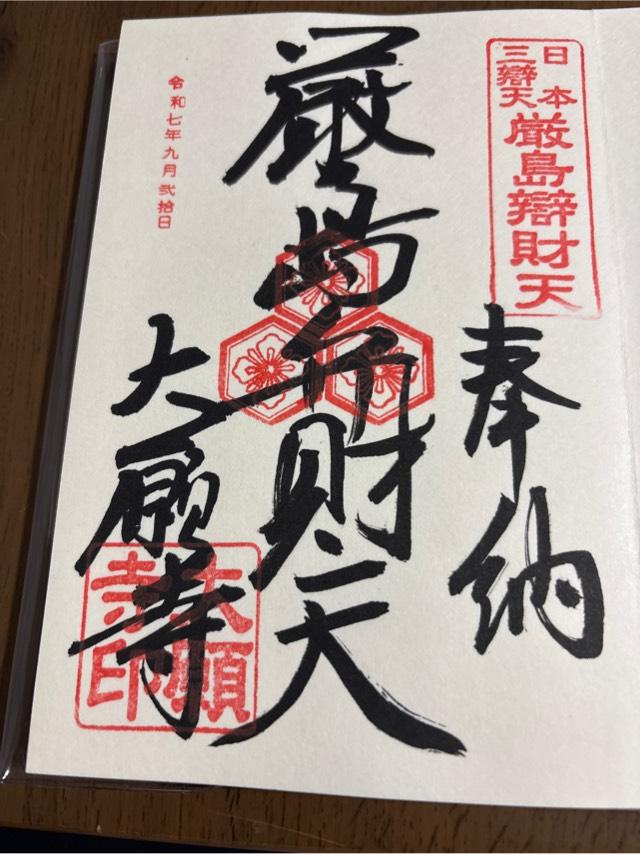 日本三辯天
厳島辯財天
奉納
厳島弁財天
大願寺
大願寺印
令和七年九月弐拾日